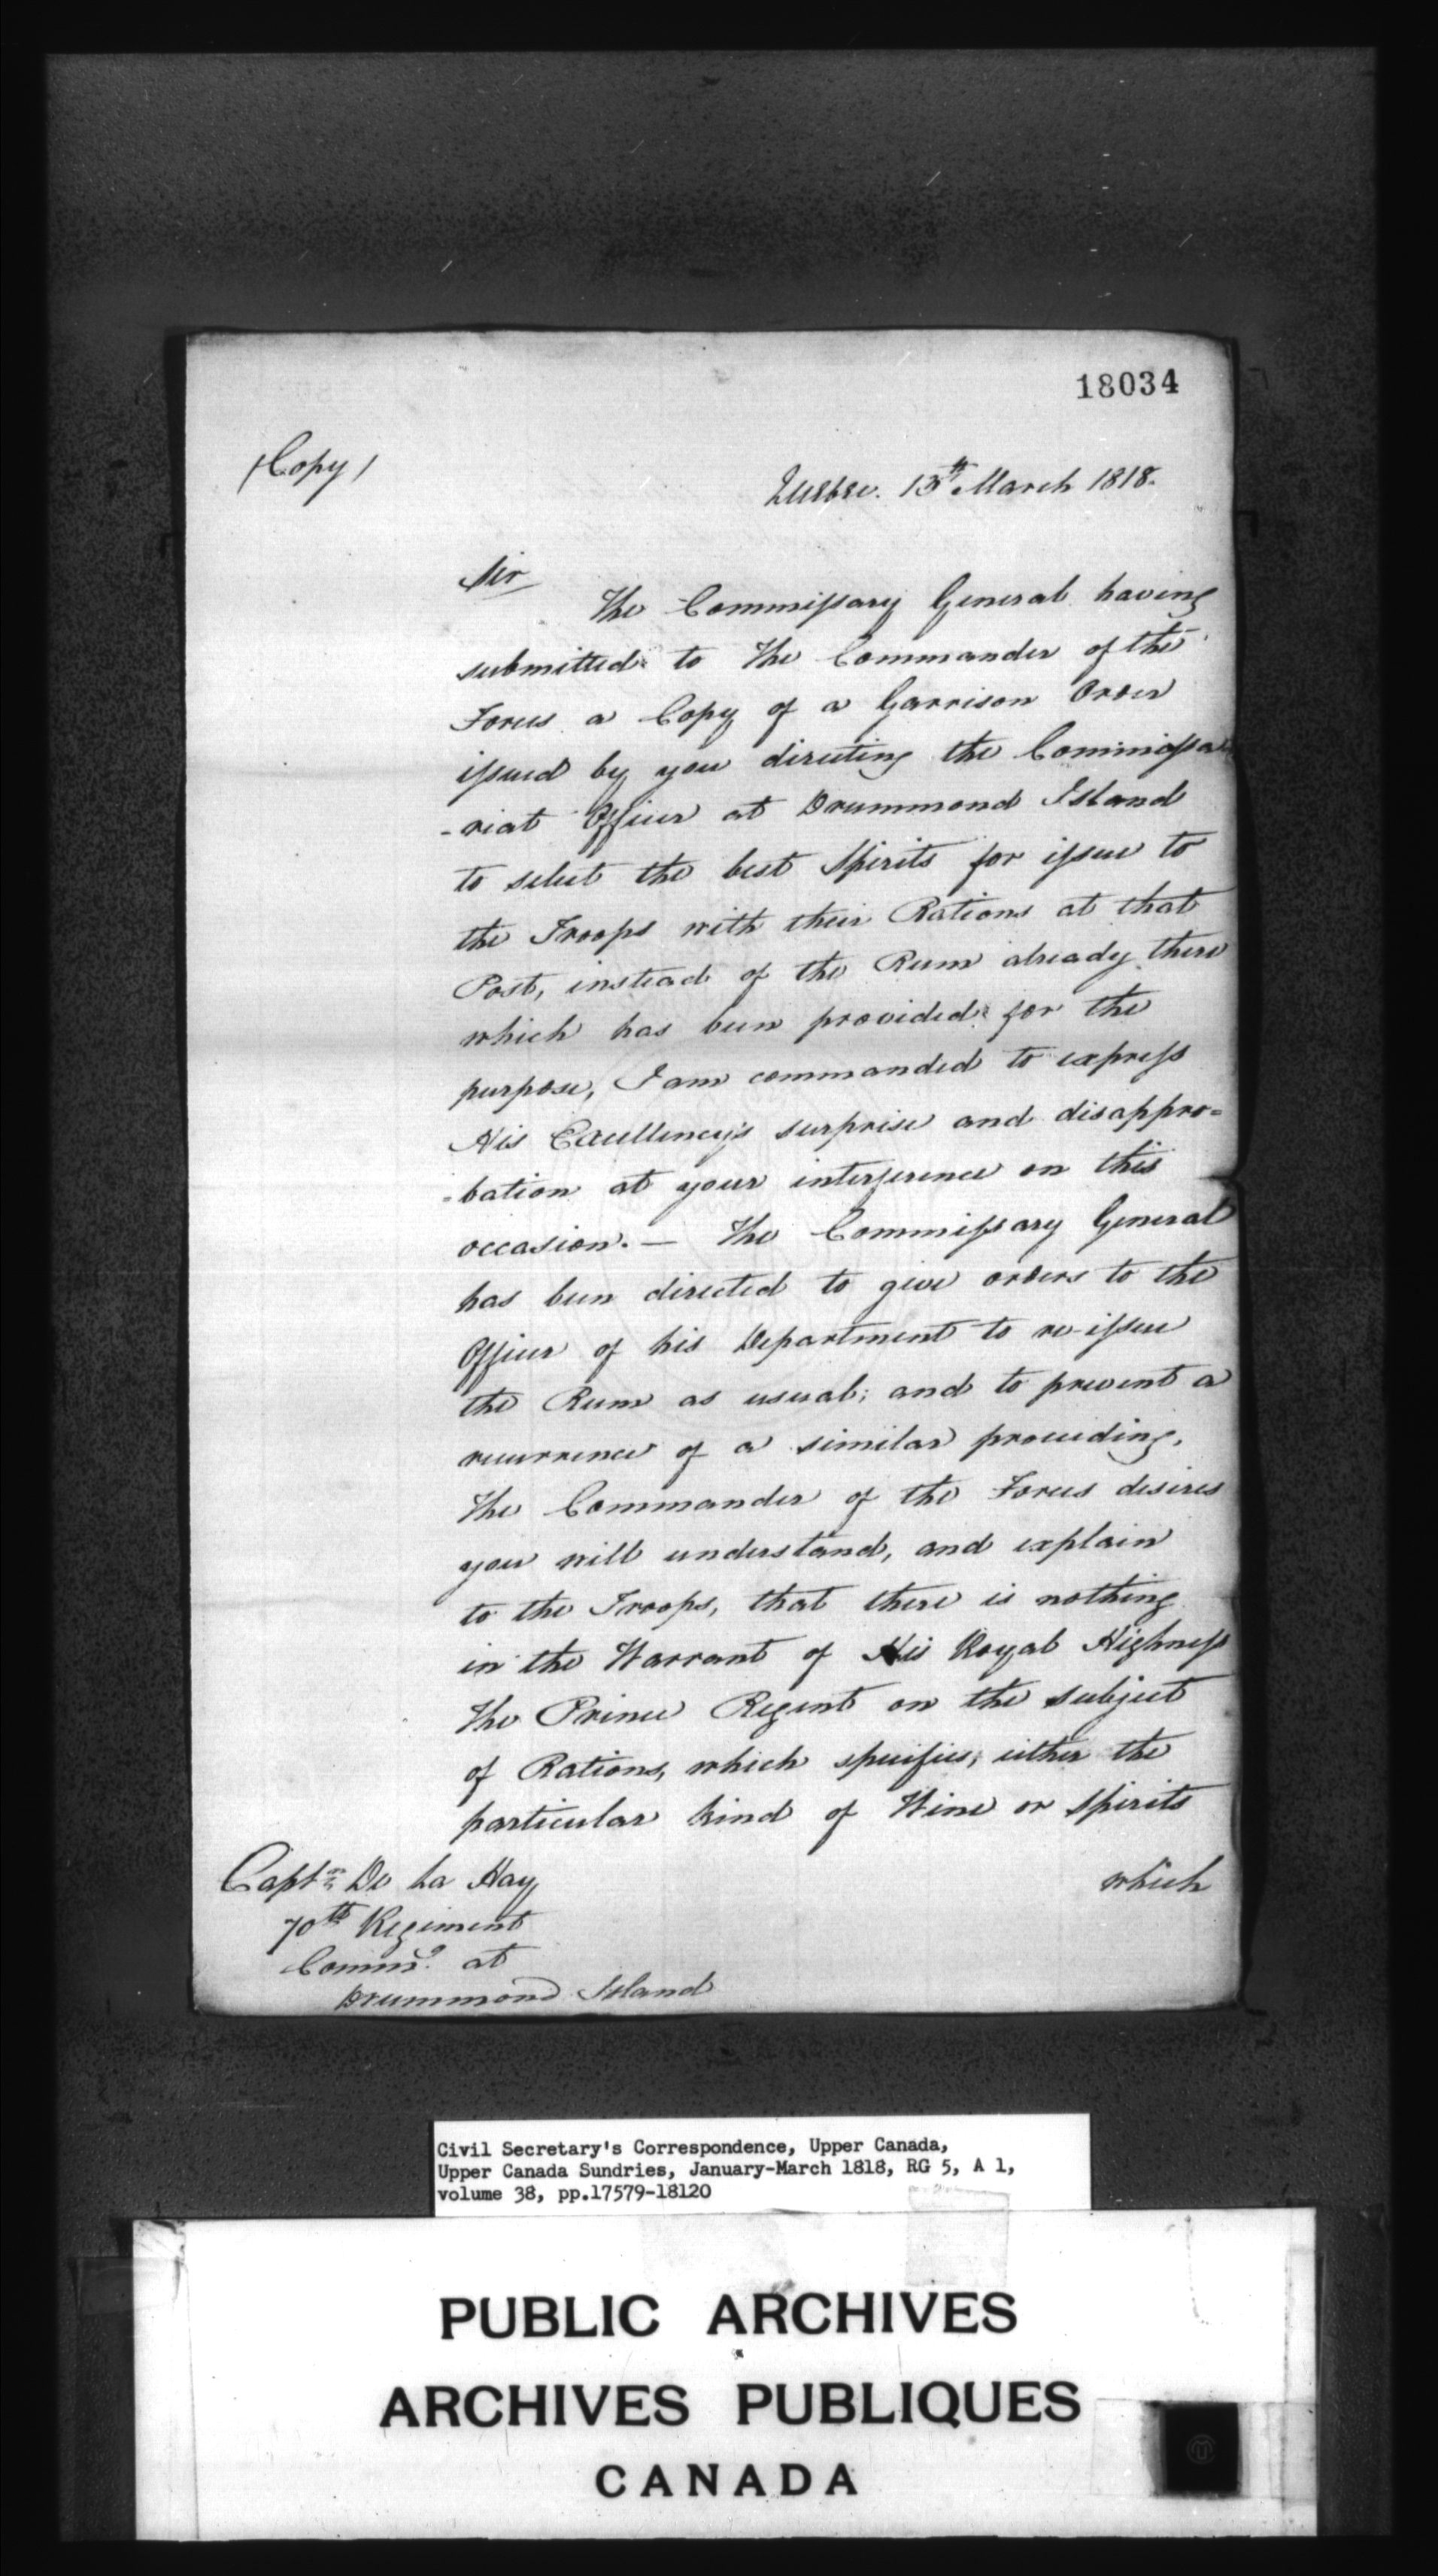 18034
(Copy)
Quebec. 13th March 1818.
Sir
The Commissary General having
submitted to The Commander of the
Forces a Copy of a Garrison Order
issued by you directing the Commissa
-riat Officer at Drummond Island
to select the best Spirits for issue to
the Troops with their Rations at that
Post, instead of the Rum already there
which has been provided for the
purpose, I am commanded to express
His Excellency's surprise and disappro=
=bation at your interference on this
occasion. — The Commissary General
has been directed to give orders to the
Officer of his Department to re-issue
the Rum as usual; and to prevent a
recurrence of a similar proceeding,
The Commander of the Forces desires
you will understand, and explain
to the Troops, that there is nothing
in the Warrant of His Royal Highness
The Prince Regent on the subject
of Rations, which specifies, either the
particular kind of Wine or Spirits
which
Captn De La Hay
70th Regiment
Commg at
Drummond Island
Civil Secretary's Correspondence, Upper Canada,
Upper Canada Sundries, January-March 1818, RG 5, A 1,
volume 38, pp.17579-18120
PUBLIC ARCHIVES
ARCHIVES PUBLIQUES
CANADA